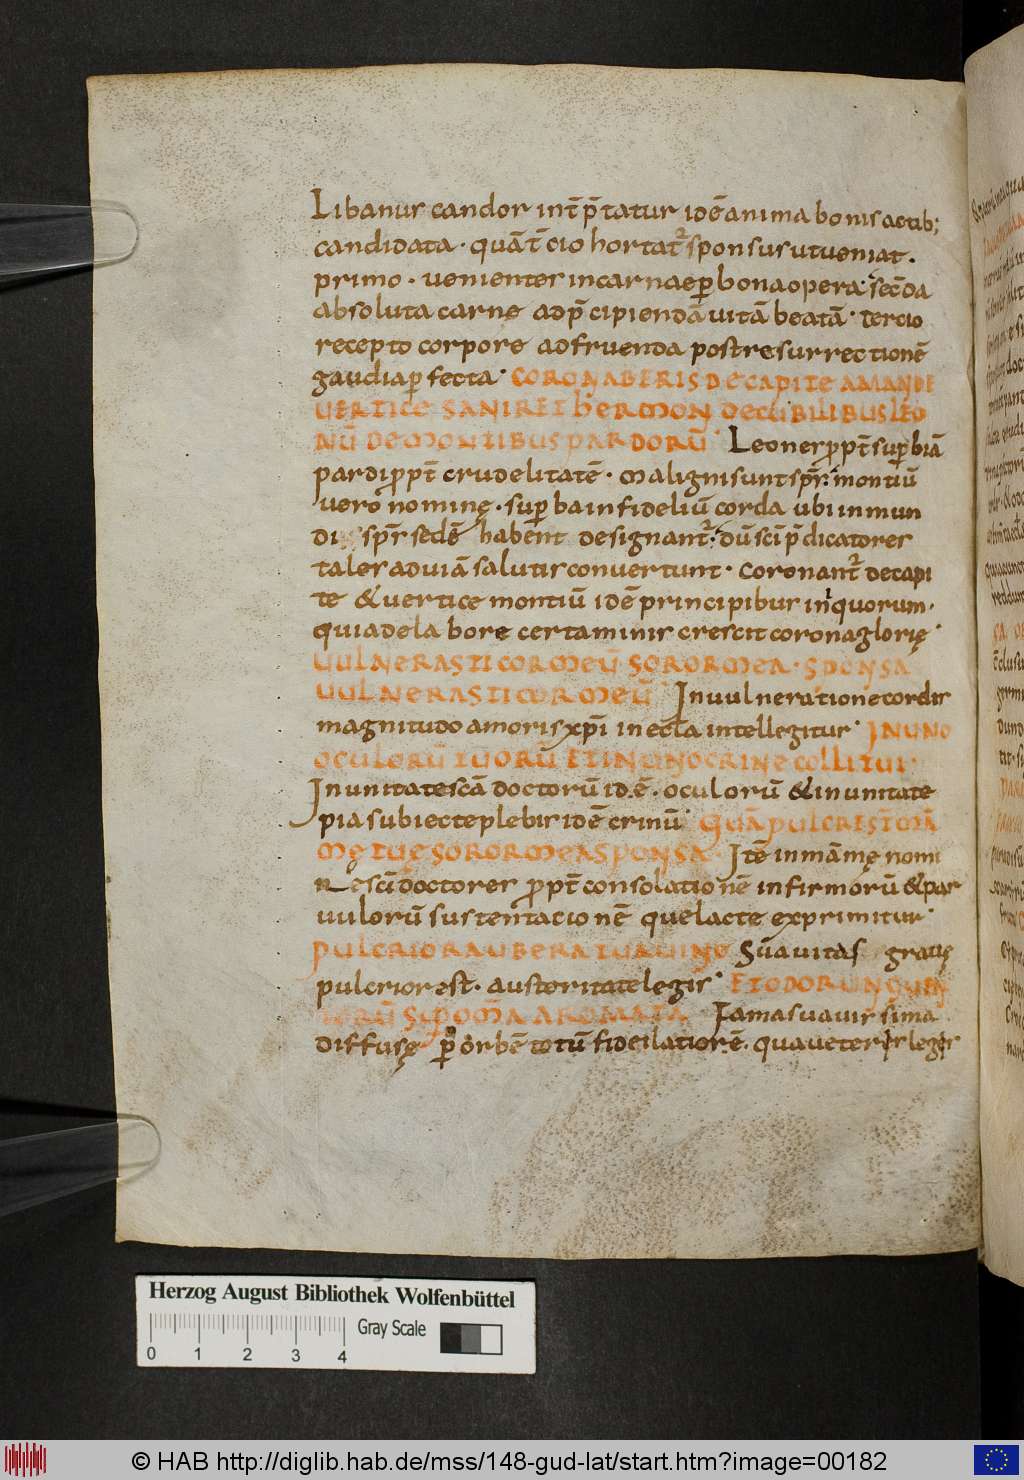 Libanus candor int̄ p̄tatur idē anima bonis actib;
candidata · quā t̄cio hortat᷑ sponsus ut veniat .
primo · venientes in carne per bona opera : sec̄da
absoluta carnę ad p̄cipiendā vitā beatā · tercio
recepto corpore ad fruenda post resurrectionē
gaudia ꝑfecta · CORONABERIS DE CAPITE AMANDE
VERTICE SANIR ET hERMON DE CUBILIBUS LEO
NŪ DE MONTIBUS PARDORŪ · Leones ꝓpt̄ suꝑbiā
pardi ꝓpt̄ crudelitatē · maligni sunt sp̄r : montiū
vero nominę · suꝑba infideliū corda ubi inmun
di sp̄r sedē habent designant᷑ : dū sc̄i p̄dicatores
tales ad viā salutis convertunt · Coronant᷑ de capi
te & vertice montiū idē principibus iniquorum ·
quia de labore certaminis crescit corona glorię ·
VULNERASTI COR MEŪ SOROR MEA · SPONSA
VULNERASTI COR MEŪ In vulneratione cordis
magnitudo amoris xp̄i in eccl̄a intellegitur · IN UNO
OCULORŪ TUORŪ ET IN UNO CRINE COLLI TUI ·
In unitate sc̄ā doctorū id ē · oculorū & in unitate
pia subiecte plebis idē crinū · QUĀ PULCRE ST̄ MĀ
MĘ TUĘ SOROR MEA SPONSA · Itē in māmę nomi
ne sc̄i doctores ꝓpt̄ consolationē infirmorū & par
vulorū sustentacionē que lacte exprimitur ·
PULCRIORA UBERA TUA VINO Sūavitas gratię
pulcrior est · austoritate legis · ET ODOR UNGUEN
TORŪ SUP OM̄A AROMATA Fama suavissima
diffusę ꝑ orbē totū fideilatior ē · qua veteris legis
Herzog August Bibliothek Wolfenbüttel
0 1 2 3 4 Gray Scale
© HAB http://diglib.hab.de/mss/148-gud-lat/start.htm?image=00182